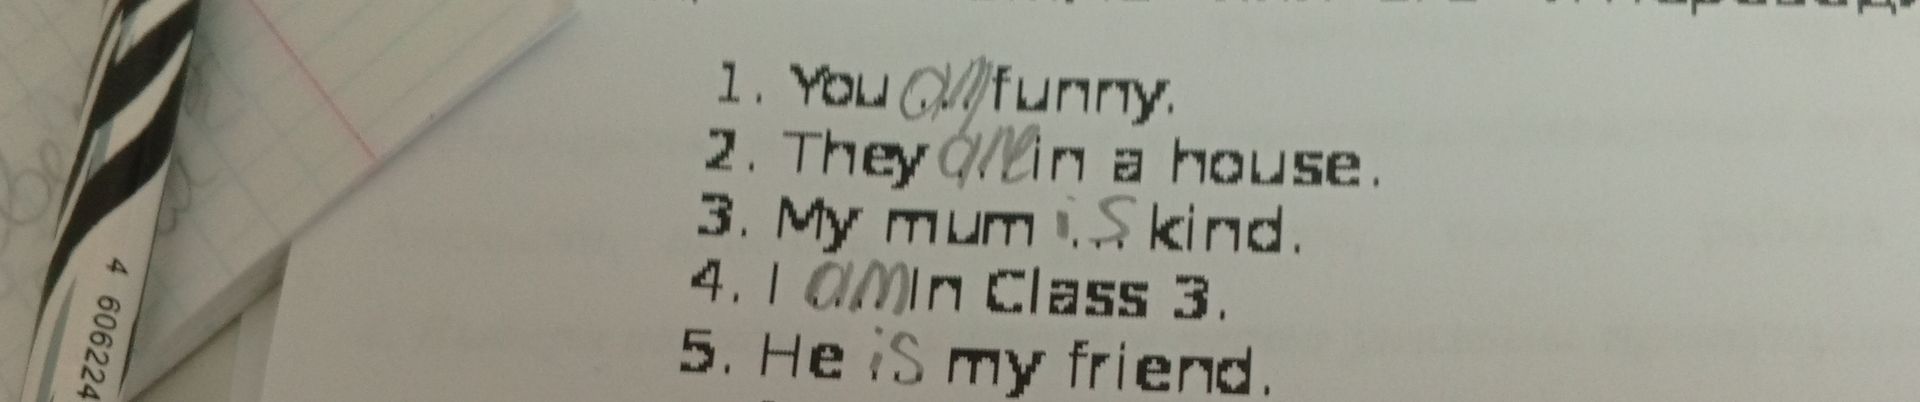 1. You am funny.
2. They are in a house.
3. My mum is kind.
4. I am in Class 3.
5. He is my friend.
4 606224